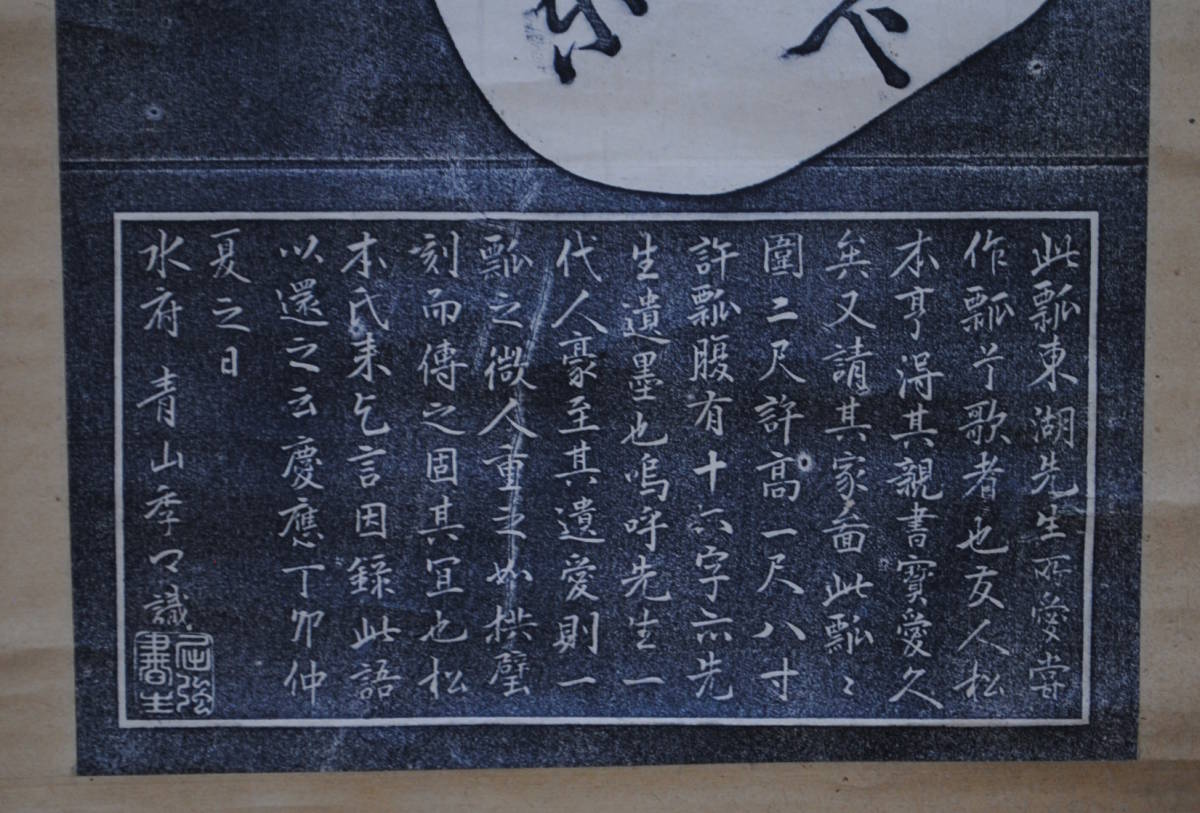 此瓢東湖先生所愛甞
作瓢兮歌者也友人松
本亨得其親書寶愛久
矣又請其家面此瓢〻
圍二尺許高一尺八寸
許瓢腹有十六字亦先
生遺墨也嗚呼先生一
代人豪至其遺愛則一
瓢之微人重之如拱璧
刻而傳之固其冝也松
本氏来乞言因録此語
以還之云慶應丁卯仲
夏之日
水府 青山季卿識
屈強書生